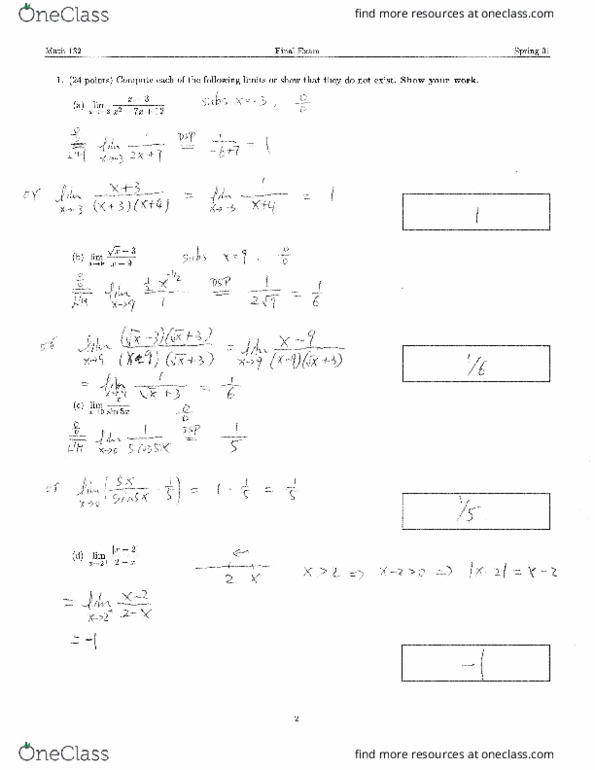 OneClass
find more resources at oneclass.com
Math 132 Final Exam Spring
1. (24 points) Compute each of the following limits or show that they do not exist. Show your work.
(a) lim x→-3 (x + 3)/(x² + 7x + 12) subs x=-3, 0/0
0/0 = L'H lim x→-3 1/(2x+7) DSP = 1/(-6+7) = 1
or lim x→-3 (x+3)/((x+3)(x+4)) = lim x→-3 1/(x+4) = 1
1
(b) lim x→9 (√x − 3)/(x − 9) subs x=9, 0/0
0/0 = L'H lim x→9 (½ x^(-1/2))/1 DSP = 1/(2√9) = 1/6
or lim x→9 ((√x −3)(√x +3))/((x−9)(√x +3)) = lim x→9 (x−9)/((x−9)(√x +3))
= lim x→9 1/(√x +3) = 1/6
1/6
(c) lim x→0 x/(sin 5x) 0/0
0/0 = L'H lim x→0 1/(5cos5x) DSP = 1/5
or lim x→0 (5x/sin5x · 1/5) = 1 · 1/5 = 1/5
1/5
(d) lim x→2⁺ |x − 2|/(2 − x) ← 2 x x>2 ⇒ x−2>0 ⇒ |x−2| = x−2
= lim x→2⁺ (x−2)/(2−x)
= −1
−1
2
OneClass
find more resources at oneclass.com